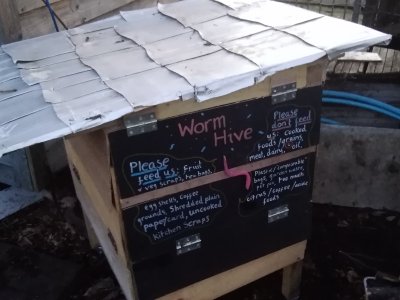 Worm
Hive
Please
feed us: Fruit
& veg scraps, tea bags,
egg shells, coffee
grounds, Shredded plain
paper/card, uncooked
Kitchen Scraps
Please
don't feed
us: Cooked
foods/grains,
meat, dairy, oil,
Plastic/compostable
bags, garden waste,
too much
citrus/coffee/acidic
foods